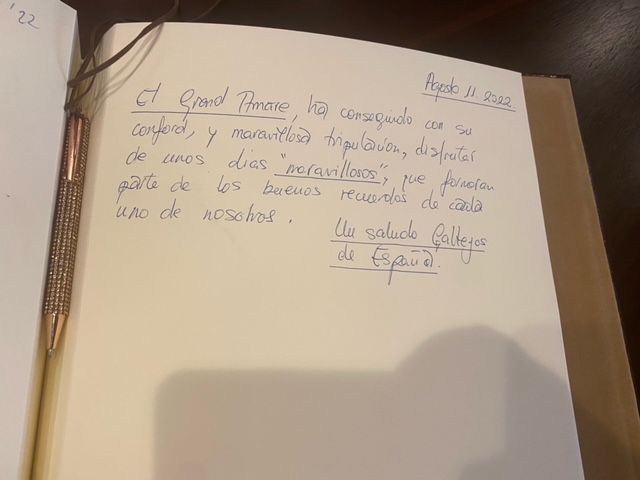 '22
Agosto 11 2022
El Grand Amare, ha conseguido con su
conford, y maravillosa tripulación, disfrutar
de unos dias "maravillosos", que formaran
parte de los buenos recuerdos de cada
uno de nosotros.
Un saludo Gallegos
de España.